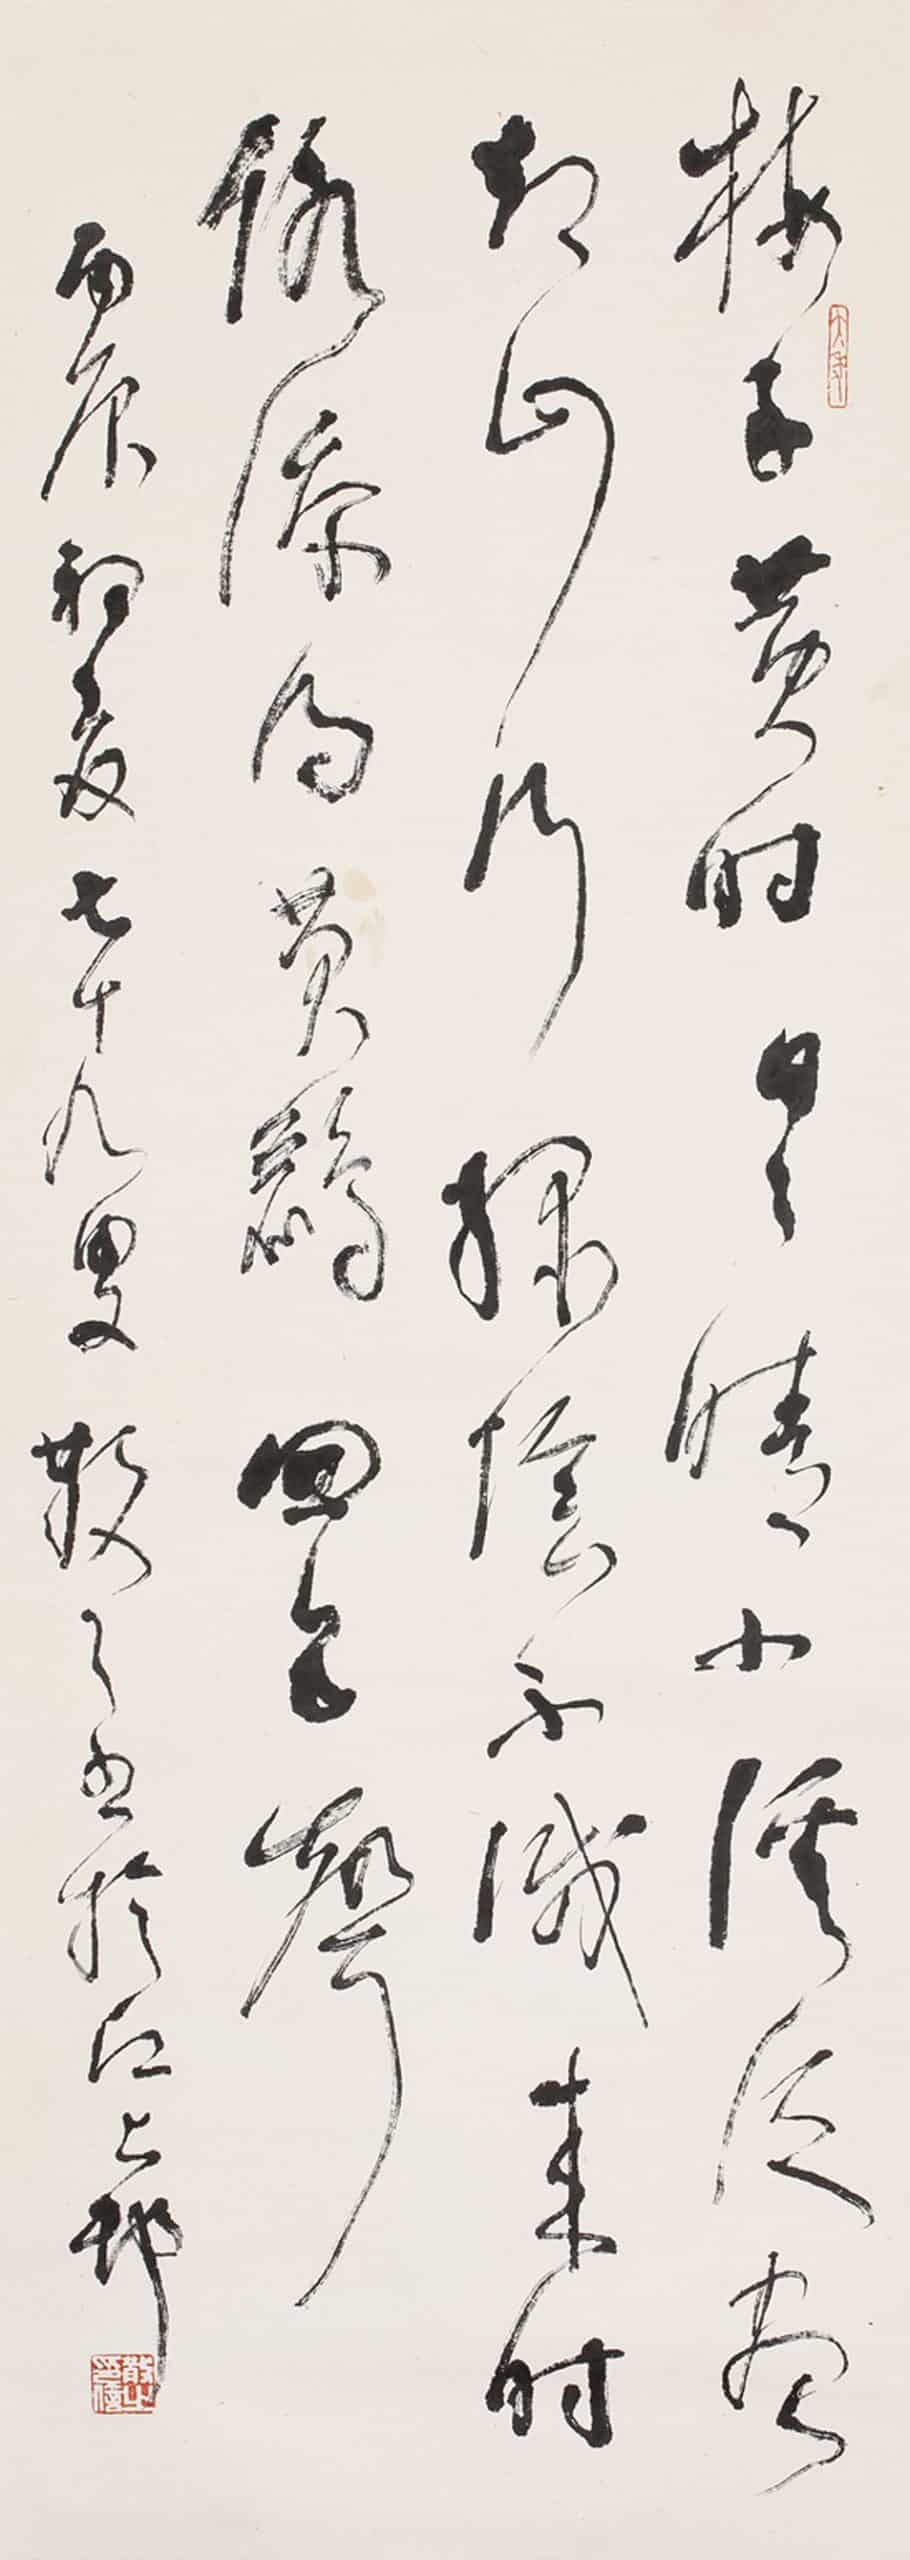 梅子黄时日日晴小溪泛尽
却山行绿阴不减来时
路添得黄鹂四五声
丙辰初夏七十九叟散之书于江上邨
散之信印